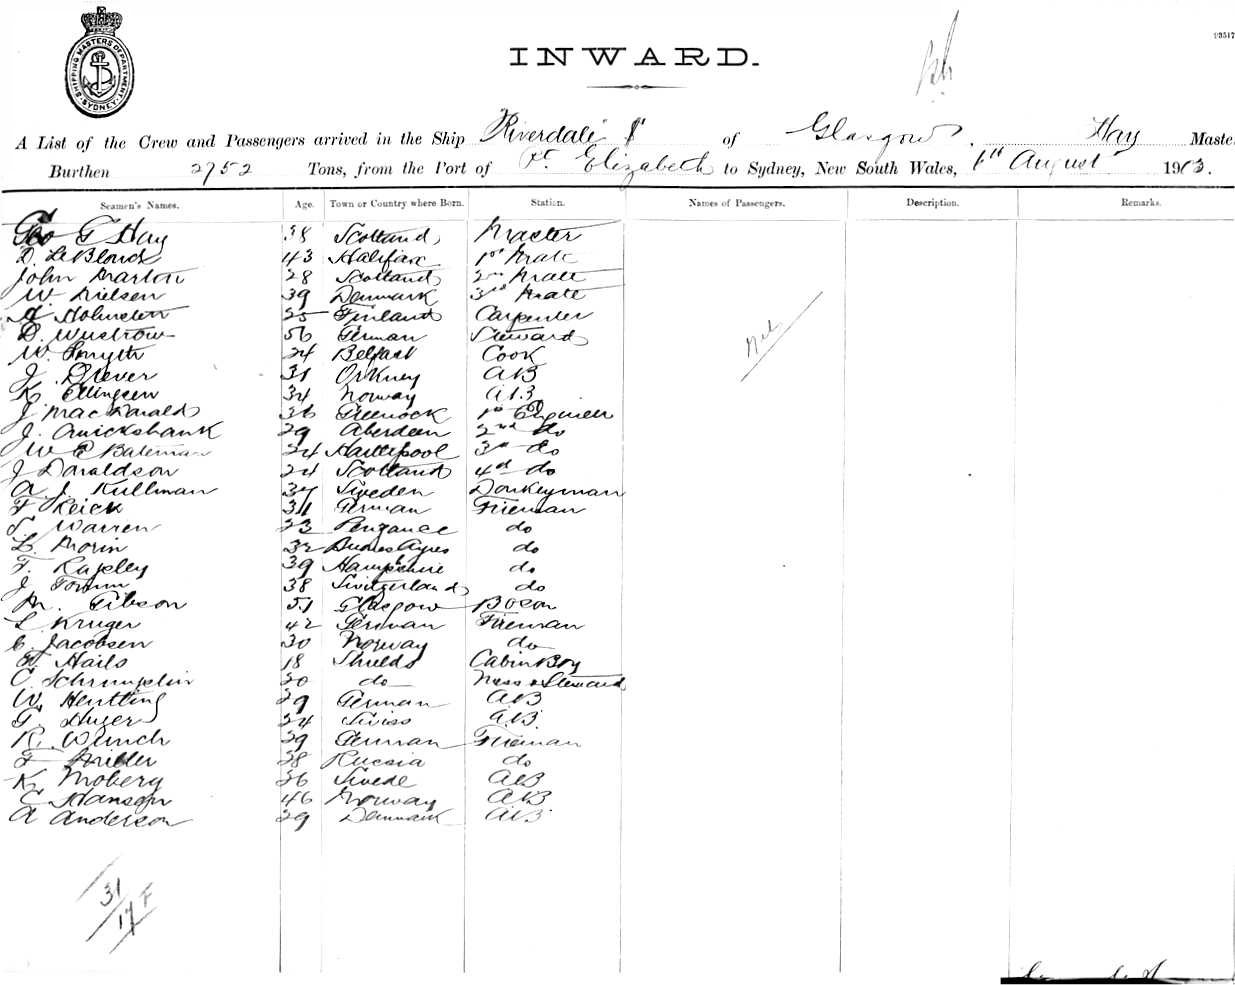 SHIPPING MASTERS DEPARTMENT SYDNEY
INWARD.
A List of the Crew and Passengers arrived in the Ship Riverdale S of Glasgow, Hay Master
Burthen 2752 Tons, from the Port of Pt. Elizabeth to Sydney, New South Wales, 6th August 1903.
Seamen's Names. Age. Town or Country where Born. Station. Names of Passengers. Description. Remarks.
Geo G Hay 38 Scotland Master
D. LeBlond 43 Halifax 1st Mate
John Marton 28 Scotland 2nd Mate
W. Nielsen 39 Denmark 3rd Mate
Holmsten 25 Finland Carpenter
D. Wustrow 56 German Steward
W. Smyth 24 Belfast Cook
J. Drever 31 Orkney AB
K. Ellingsen 34 Norway AB
J. MacDonald 36 Greenock 1st Engineer
J. Cruickshank 29 Aberdeen 2nd do
W E Bateman 24 Hartlepool 3rd do
J Donaldson 24 Scotland 4th do
A. J. Kullman 37 Sweden Donkeyman
F Reick 31 German Fireman
Warren 23 Penzance do
L. Morin 32 Buenos Ayres do
F. Rapley 39 Hampshire do
J 38 Switzerland do
M. Gibson 51 Glasgow Bosun
L Kruger 42 German Fireman
C. Jacobsen 30 Norway do
Hails 18 Shields Cabin Boy
C. Schrumplin 20 do Mess Steward
W. Hentling 29 German AB
G. 24 Swiss A.B.
R. Wunch 29 German Fireman
F Miller 28 Russia do
K. Moberg 26 Swede AB
C Hanson 46 Norway AB
A Anderson 29 Denmark AB
Nil
31
17 F